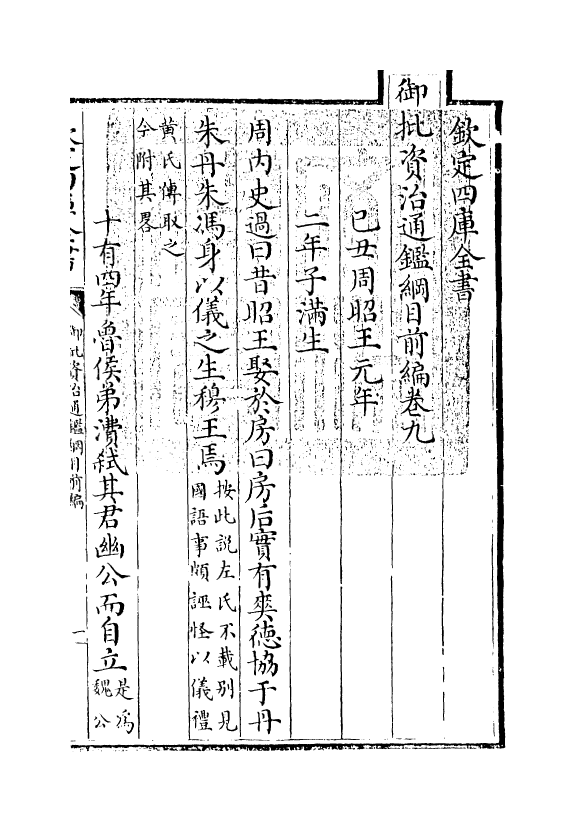 欽定四庫全書
御批資治通鑑綱目前編卷九
己丑周昭王元年
二年子滿生
周内史過曰昔昭王娶於房曰房后實有爽徳協于丹
朱丹朱馮身以儀之生穆王焉按此説左氏不載別見
國語事頗誣怪以儀禮
黄氏傳取之
今附其畧
十有四年魯侯弟㵒弑其君幽公而自立是為
魏公
御批資治通鑑綱目前編
一